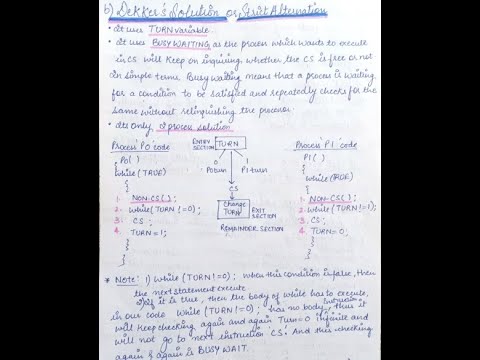 b) Dekker's Solution or Strict Alternation
• It uses TURN variable.
• It uses BUSY WAITING as the process which wants to execute
in CS will keep on inquiring whether the CS is free or not
in simple terms Busy waiting means that a process is waiting
for a condition to be satisfied and repeatedly checks for the
same without relinquishing the processor.
• Its Only, 2 process solution
Process P0 code
P0( )
while (TRUE)
{
1. NON-CS( );
2. while (TURN != 0);
3. CS;
4. TURN = 1;
}
}
ENTRY SECTION
TURN
0
1
P0 turn
P1 turn
CS
Change TURN
EXIT SECTION
REMAINDER SECTION
Process P1 code
P1( )
{
while (TRUE)
{
1. NON-CS( );
2. while (TURN != 1);
3. CS;
4. TURN = 0;
}
}
* Note: 1) while (TURN != 0); when this condition is false, then
the next statement execute
2) If it is true, then the body of while has to execute,
in our code while (TURN != 0); has no body, thus it
will keep checking again and again Turn = 0 infinite and
will not go to next instruction 'CS'. And this checking
again & again is BUSY WAIT.